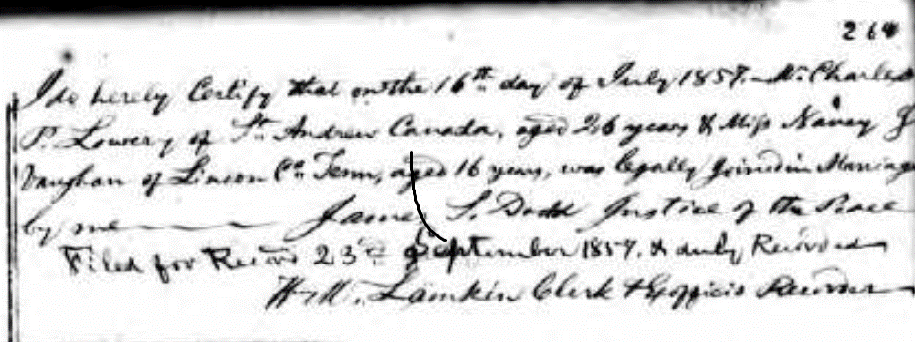 264
I do hereby Certify that on the 16th day of July 1857. Mr. Charles
P. Lowery of St. Andrew Canada, aged 26 years & Miss Nancy
Vaughan of Lincon Co. Tenn, aged 16 years, was legally joined in Marriage
by me James S. Dodd Justice of the Peace
Filed for Record 23rd September 1857. & duly Recorded
Lamkin Clerk & Exofficio Recorder